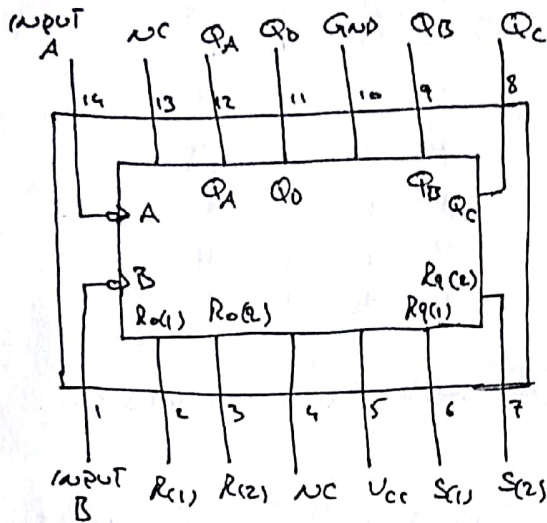 INPUT A NC QA QD GND QB QC
14 13 12 11 10 9 8
QA QD QB QC
A
B
R0(1) R0(2) R9(1) R9(2)
1 2 3 4 5 6 7
INPUT B R(1) R(2) NC VCC S(1) S(2)